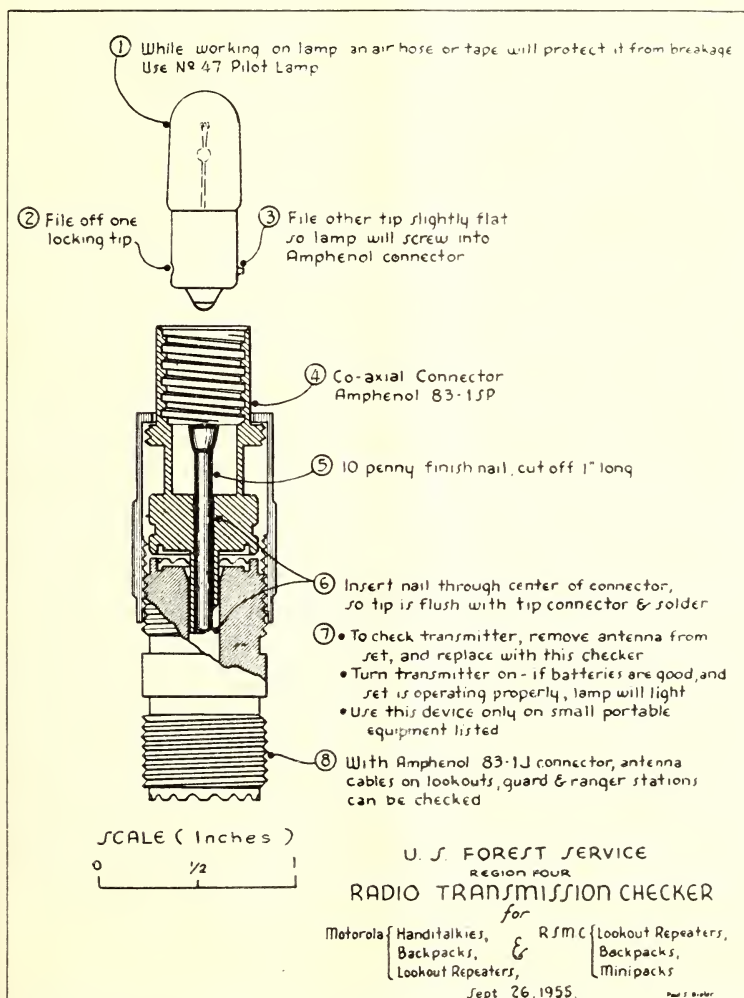 ① While working on lamp an air hose or tape will protect it from breakage
Use Nº 47 Pilot Lamp
② File off one
locking tip
③ File other tip slightly flat
so lamp will screw into
Amphenol connector
④ Co-axial Connector
Amphenol 83-1SP
⑤ 10 penny finish nail, cut off 1" long
⑥ Insert nail through center of connector,
so tip is flush with tip connector & solder
⑦ • To check transmitter, remove antenna from
set, and replace with this checker
• Turn transmitter on - if batteries are good, and
set is operating properly, lamp will light
• Use this device only on small portable
equipment listed
⑧ With Amphenol 83-1J connector, antenna
cables on lookouts, guard & ranger stations
can be checked
SCALE (Inches)
0 1/2 1
U. S. FOREST SERVICE
REGION FOUR
RADIO TRANSMISSION CHECKER
for
Motorola { Handitalkies, & RSMC { Lookout Repeaters,
Backpacks, Backpacks,
Lookout Repeaters, Minipacks
Sept 26, 1955.
Paul S.